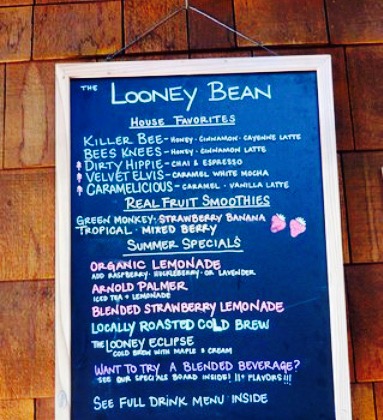 THE LOONEY BEAN
HOUSE FAVORITES
KILLER BEE - HONEY · CINNAMON · CAYENNE LATTE
BEES KNEES - HONEY · CINNAMON LATTE
DIRTY HIPPIE - CHAI & ESPRESSO
VELVET ELVIS - CARAMEL WHITE MOCHA
CARAMELICIOUS - CARAMEL · VANILLA LATTE
REAL FRUIT SMOOTHIES
GREEN MONKEY · STRAWBERRY BANANA
TROPICAL · MIXED BERRY
SUMMER SPECIALS
ORGANIC LEMONADE
ADD RASPBERRY · HUCKLEBERRY · OR LAVENDER
ARNOLD PALMER
ICED TEA & LEMONADE
BLENDED STRAWBERRY LEMONADE
LOCALLY ROASTED COLD BREW
THE LOONEY ECLIPSE
COLD BREW WITH MAPLE & CREAM
WANT TO TRY A BLENDED BEVERAGE?
SEE OUR SPECIALS BOARD INSIDE! 11+ FLAVORS!!!
SEE FULL DRINK MENU INSIDE